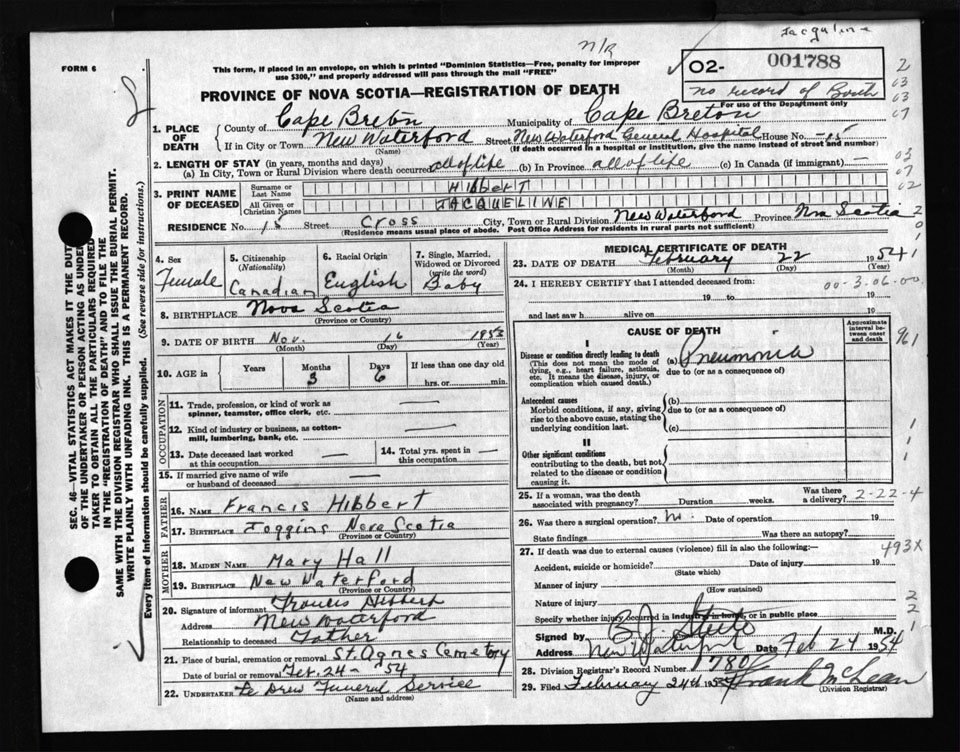 Jacquline
N/R
FORM 6
This form, if placed in an envelope, on which is printed "Dominion Statistics—Free, penalty for improper
use $300," and properly addressed will pass through the mail "FREE"
O2- 001788
no record of Birth
For use of the Department only
PROVINCE OF NOVA SCOTIA—REGISTRATION OF DEATH
1. PLACE OF DEATH
County of Cape Breton Municipality of Cape Breton
If in City or Town New Waterford Street New Waterford General Hospital House No. —15—
(Name) (If death occurred in a hospital or institution, give the name instead of street and number)
2. LENGTH OF STAY (in years, months and days)
(a) In City, Town or Rural Division where death occurred all of life (b) In Province all of life (c) In Canada (if immigrant) —
3. PRINT NAME OF DECEASED
Surname or Last Name HIBBERT
All Given or Christian Names JACQUELINE
RESIDENCE No. 15 Cross City, Town or Rural Division New Waterford Province Nova Scotia
(Residence means usual place of abode. Post Office Address for residents in rural parts not sufficient)
4. Sex Female
5. Citizenship (Nationality) Canadian
6. Racial Origin English
7. Single, Married, Widowed or Divorced (write the word) Baby
8. BIRTHPLACE Nova Scotia
(Province or Country)
9. DATE OF BIRTH Nov. 16 1953
(Month) (Day) (Year)
10. AGE in Years Months 3 Days 6 If less than one day old
hrs. or min.
OCCUPATION
11. Trade, profession, or kind of work as
spinner, teamster, office clerk, etc. —
12. Kind of industry or business, as cotton-
mill, lumbering, bank, etc. —
13. Date deceased last worked
at this occupation —
14. Total yrs. spent in
this occupation —
15. If married give name of wife
or husband of deceased —
FATHER
16. NAME Francis Hibbert
17. BIRTHPLACE Joggins Nova Scotia
(Province or Country)
MOTHER
18. MAIDEN NAME Mary Hall
19. BIRTHPLACE New Waterford
(Province or Country)
20. Signature of informant Francis Hibbert
Address New Waterford
Relationship to deceased Father
21. Place of burial, cremation or removal St. Agnes Cemetery
Date of burial or removal Feb. 24 - '54
22. UNDERTAKER Le Drew Funeral Service
(Name and address)
MEDICAL CERTIFICATE OF DEATH
23. DATE OF DEATH February 22 1954
(Month) (Day) (Year)
24. I HEREBY CERTIFY that I attended deceased from:
00-3.06-00
19 to 19
and last saw h alive on 19
CAUSE OF DEATH
Approximate interval between onset and death
I
Disease or condition directly leading to death
(This does not mean the mode of dying, e.g., heart failure, asthenia, etc. It means the disease, injury, or complication which caused death.)
(a) Pneumonia
due to (or as a consequence of)
Antecedent causes
Morbid conditions, if any, giving rise to the above cause, stating the underlying condition last.
(b)
due to (or as a consequence of)
(c)
II
Other significant conditions
contributing to the death, but not related to the disease or condition causing it.
25. If a woman, was the death
associated with pregnancy? Duration weeks. Was there a delivery? 2-22-4
26. Was there a surgical operation? No. Date of operation 19
State findings Was there an autopsy?
493X
27. If death was due to external causes (violence) fill in also the following:—
Accident, suicide or homicide? Date of injury 19
(State which)
Manner of injury
(How sustained)
Nature of injury
Specify whether injury occurred in industry, in home, or in public place
Signed by M.D.
Address New Waterford Date Feb 24 1954
28. Division Registrar's Record Number 1780
29. Filed February 24th 1954 Frank McLean
(Division Registrar)
SEC. 46—VITAL STATISTICS ACT MAKES IT THE DUTY
OF THE UNDERTAKER OR PERSON ACTING AS UNDER-
TAKER TO OBTAIN ALL THE PARTICULARS REQUIRED
IN THE "REGISTRATION OF DEATH" AND TO FILE THE
SAME WITH THE DIVISION REGISTRAR WHO SHALL ISSUE THE BURIAL PERMIT.
WRITE PLAINLY WITH UNFADING INK. THIS IS A PERMANENT RECORD.
Every item of information should be carefully supplied. (See reverse side for instructions.)